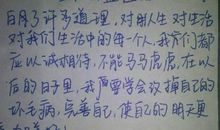 白了许多道理，对别人对生活
对我们生活中的每一个人，我们都
应以诚相待，不能马马虎虎，在以
后的日子里，我需要学会改掉自己的
坏毛病，完善自己，使自己的明天更